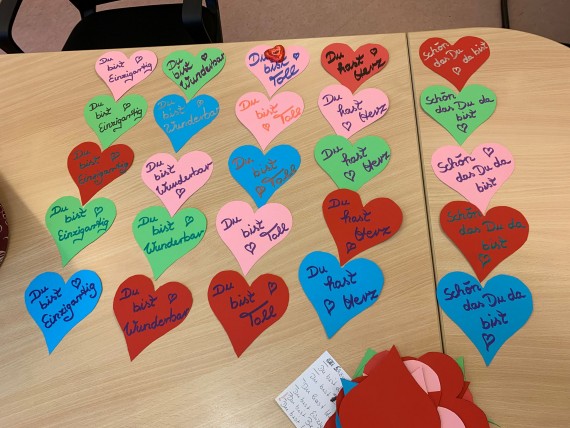 Du
bist
Einzigartig
Du
bist
Wunderbar
Du
bist
Toll
Du
hast
Herz
Schön
das Du da bist
Du
bist
Einzigartig
Du
bist
Wunderbar
Du
bist
Toll
Du
hast
Herz
Schön
das Du da
bist
Du
bist
Einzigartig
Du
bist
Wunderbar
Du
bist
Toll
Du
hast
Herz
Schön
das Du da
bist
Du
bist
Einzigartig
Du
bist
Wunderbar
Du
bist
Toll
Du
hast
Herz
Schön
das Du da
bist
Du
bist
Einzigartig
Du
bist
Wunderbar
Du
bist
Toll
Du
hast
Herz
Schön
das Du da
bist